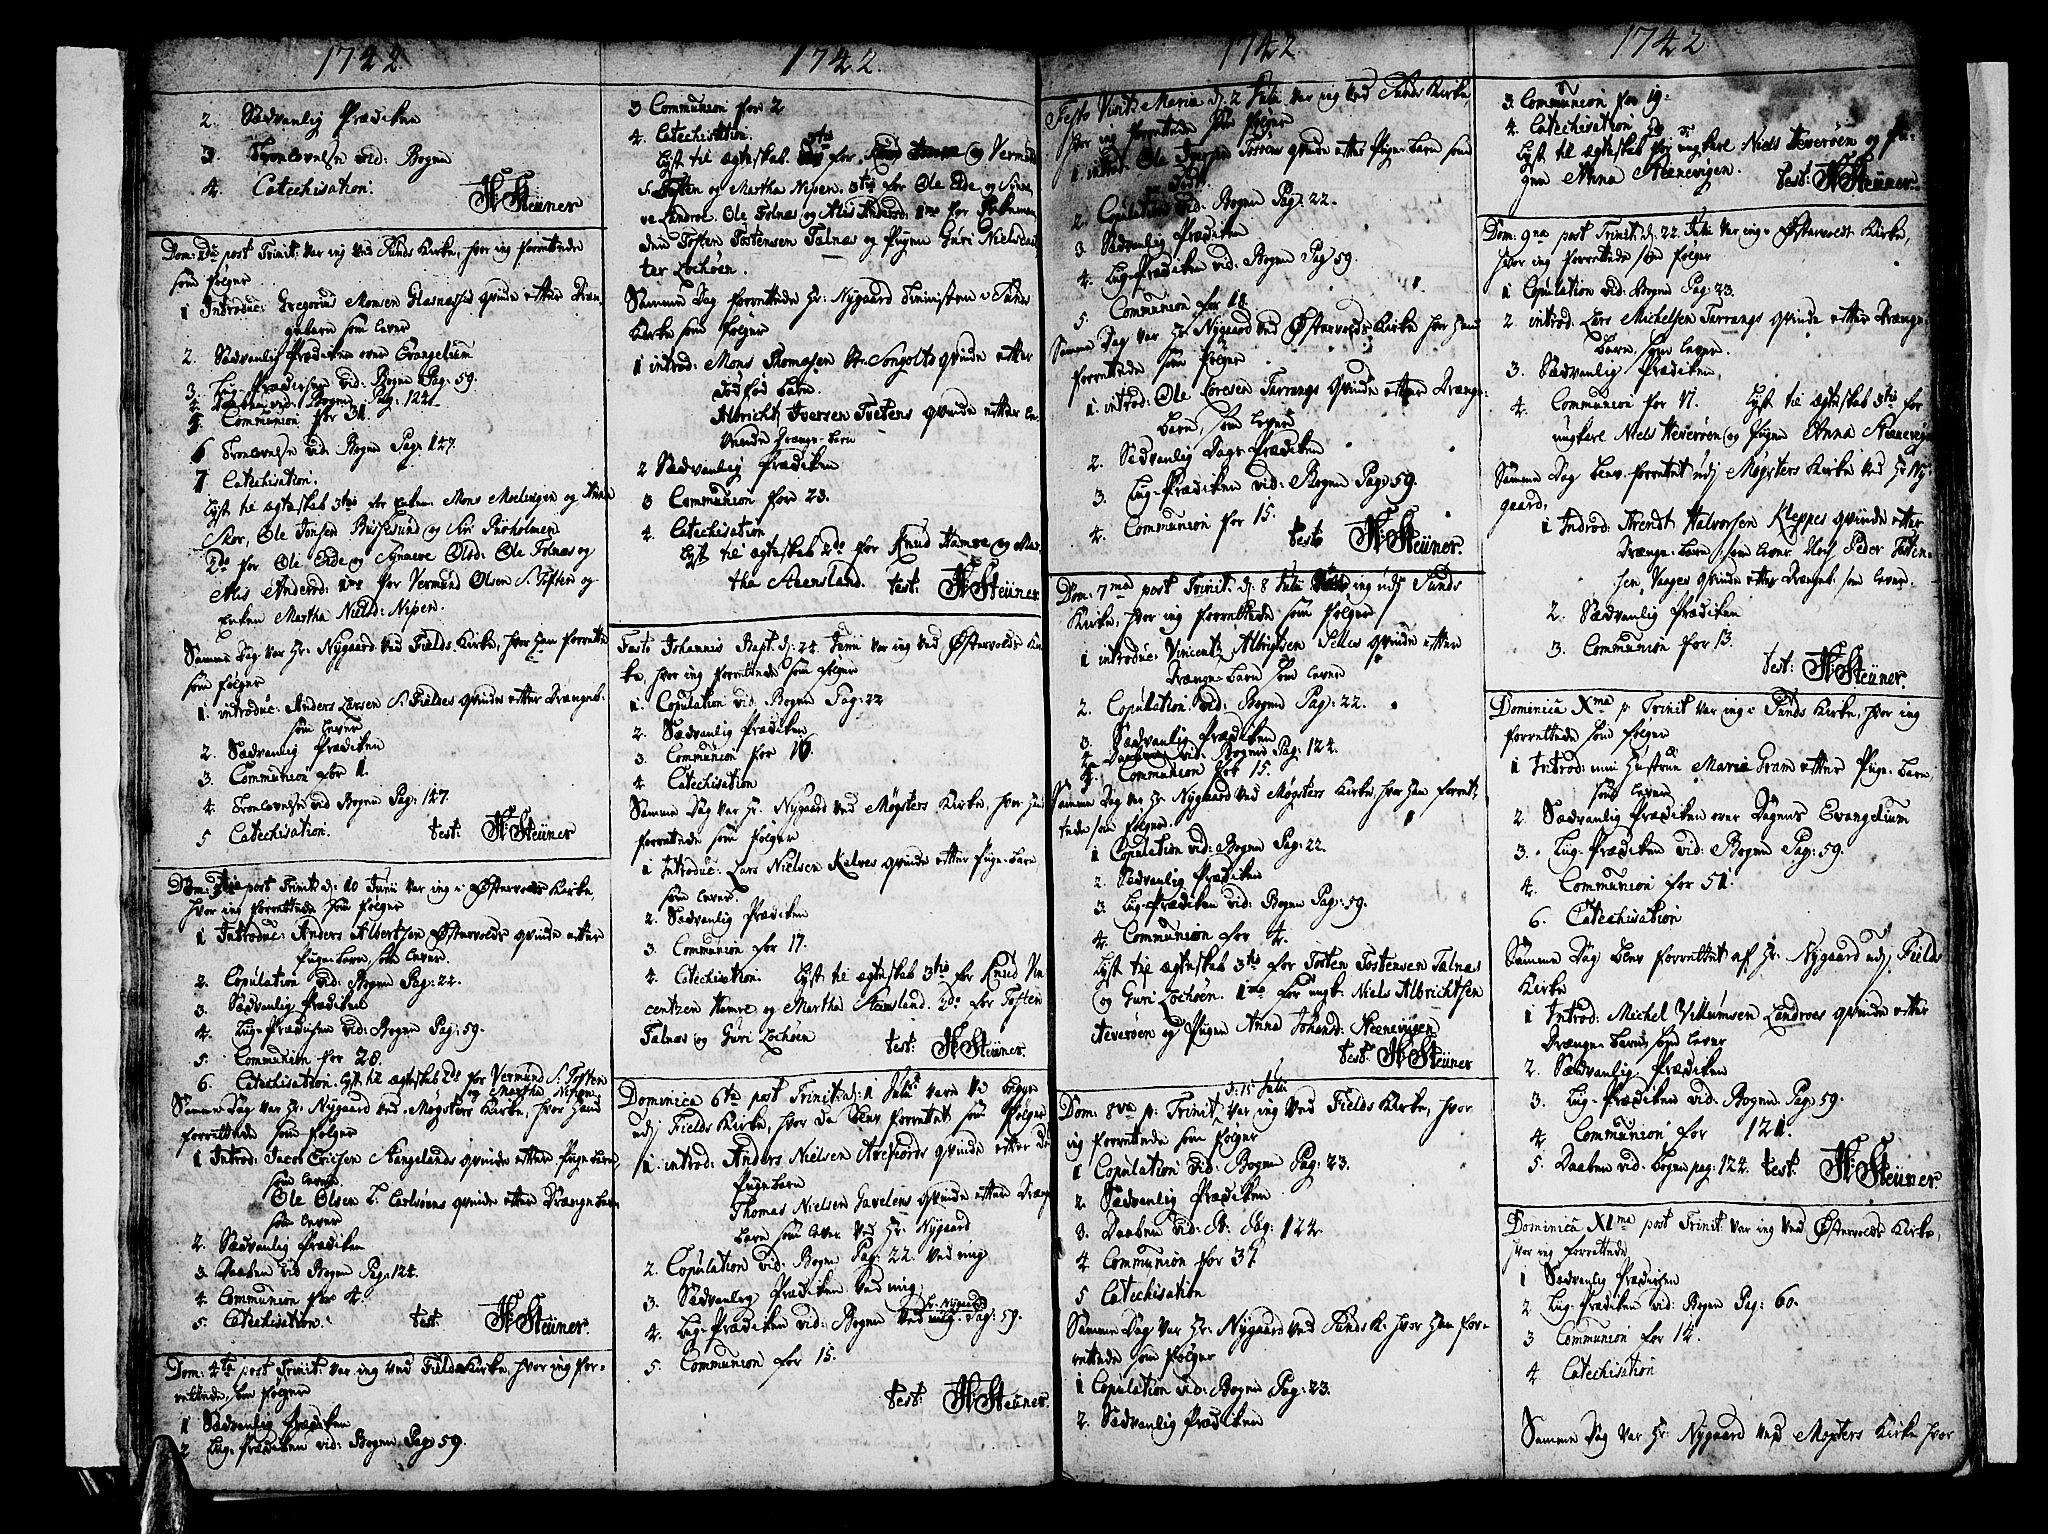 1742.
2. Sædvanlig Prædiken
3. Troelovelse vid: Bogen
4. Catechisation.
H: Steüner
Dom: 2da post Trinit: var ieg ved Sunds Kirke, hvor ieg forrettede
som følger
1 Introduc: Gregorius Monsen Glasnæssis qvinde etter Dræn-
gebarn som lever
2. Sædvanlig Prædiken over Evangelium
3. Liig-Prædiken vid: Bogen Pag: 59.
4. Daaben vid: Bogen Pag: 124.
5. Communion for 31.
6 Troelovelse vid: Bogen Pag: 147.
7. Catechisation.
Lyst til ægteskab 3tis for Enkem: Mons Moelvigen og Anna
Skor, Ole Jonsen Bussesund og Siri Buxholmen
2do for Ole Eide og Synneve Olsd: Ole Tolnæs og
Alis Anderod: 1mo for Vermund Olsen S. Toften og
Enken Martha Nielsd: Nipen.
Samme Dag var Hr: Nygaard ved Fields Kirke, hvor han forrettede
som følger
1. introduc: Anders Larsen S. Fieldes qvinde etter Drængeb:
som lever
2. Sædvanlig Prædiken
3. Communion for 1.
4 Troelovelse vid Bogen Pag: 147.
5 Catechisation. test: H: Steüner
Dom: 3tia post Trinit: d: 10 Junii var ieg i Østervolds Kirke,
hvor ieg forrettede som følger
1 Introduc: Anders Albertsen Østervolds qvinde etter
Pigebarn, som lever.
2. Copulation vid: Bogen Pag: 22.
3. Sædvanlig Prædiken
4. Liig-Prædiken vid: Bogen Pag: 59.
5. Communion for 28.
6. Catechisation. Lyst til ægteskab 2do for Vermund S: Toften
og Martha Nipen
Samme Dag var Hr: Nygaard ved Møgsters Kirke, hvor hand
forrettede som følger
1 Introd: Jacob Ericsen Aangelands qvinde etter Pige barn,
som lever
Ole Olsen L. Carlsøens qvinde etter Drænge barn
som lever
2. Sædvanlig Prædiken
3. Daaben vid Bogen Pag: 124.
4. Communion for 4.
5. Catechisation. test H: Steüner.
Dom: 4ta post Trinit: var ieg ved Fields Kirke, hvor ieg for-
rettede, som følger
1 Sædvanlig Prædiken
2 Liig-Prædiken vid: Bogen Pag: 59.
1742.
3 Communion for 2
4. Catechisation.
Lyst til ægteskab 3tis for og Vermund
S. Toften og Martha Nipen. 3tis for Ole Eide og Synne-
ve Landroe. Ole Tolnæs og Alis Anderod: 1mo for Enkeman-
den Tosten Tostensen Talnæs og Pigen Guri Nielsdat-
ter Lochøen.
Samme Dag forrettede Hr: Nygaard Tienisten i Sunds
Kirke som følger
1 introd: Mons Thomæsen St. Songolts qvinde etter
Dødfød barn.
Albricht Iversen Tvetens qvinde etter le-
vende Drænge-barn
2 Sædvanlig Prædiken
3 Communion for 23.
4. Catechisation
Lyst til ægteskab 2do for Knud Hamre og Mar-
tha Steensland. test: H: Steüner
Festo Johannis Bapt. d: 24 Junii var ieg ved Østervolds Kir-
ke, hvor ieg forrettede som følger
1. Copulation vid: Bogen Pag: 22
2. Sædvanlig Prædiken
3. Communion for 16.
4 Catechisation
Samme Dag var Hr: Nygaard ved Møgsters Kirke, hvor hand
forrettede som følger
1 Introduc: Lars Nielsen Kalves qvinde etter Pige-barn
som lever.
2. Sædvanlig Prædiken
3. Communion for 17.
4. Catechisation. Lyst til ægteskab 3tis for Knud Vin-
centzen Hamre og Martha Steensland. 2do for Tosten
Talnæs og Guri Lochøen test: H: Steüner.
Dominica 6ta post Trinit: d: 1 Julii vare vi begge
udj Fields Kirke, hvor da blev forrettet som følger
1. introd: Anders Nielsen Torfiords qvinde etter
Pigebarn
Thomas Nielsen Gavelens qvinde etter Drænge
barn som lever ved Hr: Nygaard
2. Copulation vid: Bogen Pag: 22. ved mig
3. Sædvanlig Prædiken ved mig
4. Liig-Prædiken vid: Bogen ved Hr: Nygaard Pag: 59.
5. Communion for 15.
test: H: Steüner.
1742.
Festo Visit: Mariæ d: 2 Julii var ieg ved Sunds Kirke,
hvor ieg forrettede som følger
1. introd: Ole Iversen qvinde etter Pige-barn som
2. Copulation vid: Bogen Pag: 22.
3. Sædvanlig Prædiken
4. Liig-Prædiken vid: Bogen Pag: 59.
5. Communion for 18.
Samme Dag var Hr: Nygaard ved Østervolds Kirke hvor hand
forrettede som følger
1. introd: Ole Loresen Tarrangs qvinde etter Drænge-
barn, som lever
2. Sædvanlig Dags-Prædiken
3. Liig-Prædiken vid: Bogen Pag: 59.
4. Communion for 15. test H: Steüner.
Dom: 7ma post Trinit: d: 8 Julii ieg udj Sunds
Kirke, hvor ieg forrettede som følger
1 introduc: Vincentz Albrigtsen Selles qvinde etter
Drænge-barn som lever
2. Copulation vid: Bogen Pag: 22.
3. Sædvanlig Prædiken
4. Daaben vid: Bogen Pag: 124.
Communion for 15.
Samme Dag var Hr: Nygaard ved Møgsters Kirke, hvor han forret-
tede som følger.
1 Copulation vid: Bogen Pag: 22.
2. Sædvanlig Prædiken
3. Liig-Prædiken vid: Bogen Pag: 59.
4. Communion for 4.
Lyst til ægteskab 3tis for Tosten Tostensen Talnæs
og Guri Lochøen. 1mo for ungk: Niels Albrichtsen
Heverøen og Pigen Anna Johansd: Steenevigen
test: H: Steüner
d: 15 Julii
Dom: 8va p: Trinit: var ieg ved Fields Kirke, hvor
ieg forrettede som følger
1 Copulation vid: Bogen Pag: 23.
2. Sædvanlig Prædiken
3. Daaben vid: B: Pag: 124.
4. Communion for 37.
5 Catechisation
Samme Dag var Hr: Nygaard ved Sunds K: hvor han for-
rettede som følger
1 Copulation vid: Bogen Pag: 23.
2. Sædvanlig Prædiken
1742
3. Communion for 19.
4. Catechisation
Lyst til ægteskab 2do for ungkarl Niels Heverøen og Pi-
gen Anna Steenevigen. test: H: Steüner.
Dom: 9na post Trinit: d: 22 Julii var ieg i Østervolds Kirke,
hvor ieg forrettede som følger
1 Copulation vid: Bogen Pag: 23.
2 introd: Lars Michelsen Tarrangs qvinde etter Drænge-
barn, som lever.
3. Sædvanlig Prædiken,
4. Communion for 17. Lyst til ægteskab 3tis for
ungkarl Niels Heverøen og Pigen Anna Steenevigen
Samme Dag blev forrettet udj Møgsters Kirke ved Hr Ny-
gaard,
1 Introd: Arendt Halvorsen Kleppes qvinde etter
Drænge-barn, som lever. Noch Peder Tosten-
sen Vaages qvinde etter Drængeb: som lever.
2. Sædvanlig Prædiken
3. Communion for 13.
test: H: Steüner.
Dominica Xma p: Trinit var ieg i Sunds Kirke, hvor ieg
forrettede som følger
1 Introd: min Hustrue Maria Gram etter Pige-barn,
som lever
2. Sædvanlig Prædiken over Dagens Evangelium
3. Liig-Prædiken vid: Bogen Pag: 59.
4. Communion for 51.
6. Catechisation
Samme Dag blev forrettet af Hr: Nygaard udj Fields
Kirke
1 Introd: Michel Villumsen Landroes qvinde etter
Drænge-barn, som lever
2. Sædvanlig Prædiken
3. Liig-Prædiken vid: Bogen Pag: 59.
4. Communion for 121.
5. Daaben vid: Bogen pag: 124. test: H: Steüner.
Dominica XIma post Trinit var ieg ved Østervolds Kirke,
hvor ieg forrettede
1 Sædvanlig Prædiken
2 Liig-Prædiken vid: Bogen Pag: 60.
3 Communion for 14.
4 Catechisation
Samme Dag var Hr: Nygaard ved Møgsters Kirke hvor